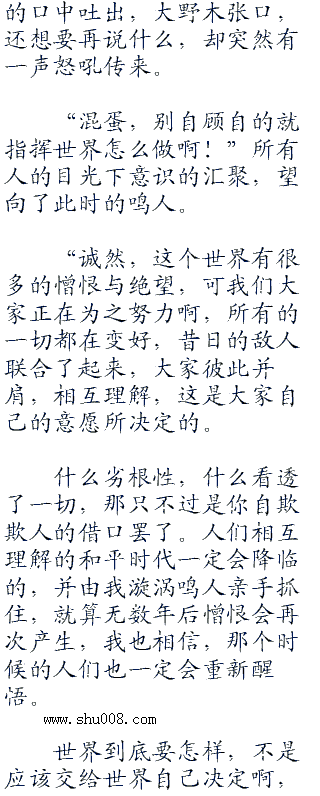 的口中吐出，大野木张口，
还想要再说什么，却突然有
一声怒吼传来。
“混蛋，别自顾自的就
指挥世界怎么做啊！”所有
人的目光下意识的汇聚，望
向了此时的鸣人。
“诚然，这个世界有很
多的憎恨与绝望，可我们大
家正在为之努力啊，所有的
一切都在变好，昔日的敌人
联合了起来，大家彼此并
肩，相互理解，这是大家自
己的意愿所决定的。
什么劣根性，什么看透
了一切，那只不过是你自欺
欺人的借口罢了。人们相互
理解的和平时代一定会降临
的，并由我漩涡鸣人亲手抓
住，就算无数年后憎恨会再
次产生，我也相信，那个时
候的人们也一定会重新醒
悟。
www.shu008.com
世界到底要怎样，不是
应该交给世界自己决定啊，